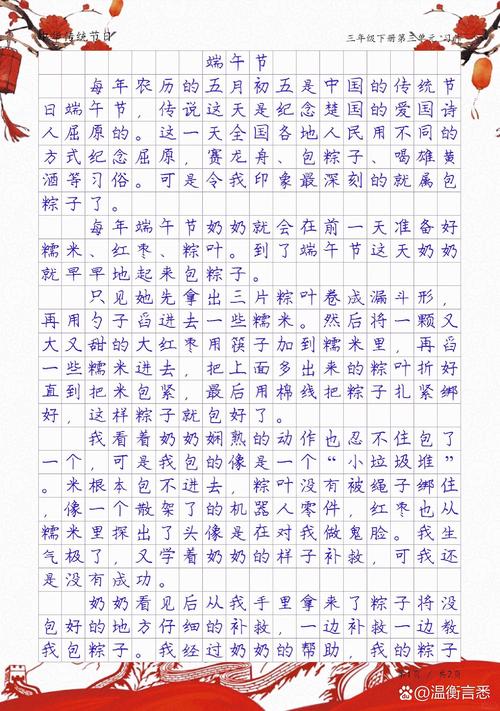 中华传统节日
三年级下册第三单元“习作
端午节
每年农历的五月初五是中国的传统节
日端午节，传说这天是纪念楚国的爱国诗
人屈原的。这一天全国各地人民用不同的
方式纪念屈原，赛龙舟、包粽子、喝雄黄
酒等习俗。可是令我印象最深刻的就属包
粽子了。
每年端午节奶奶就会在前一天准备好
糯米、红枣、粽叶。到了端午节这天奶奶
就早早地起来包粽子。
只见她先拿出三片粽叶卷成漏斗形，
再用勺子舀进去一些糯米。然后将一颗又
大又甜的大红枣用筷子加到糯米里，再舀
一些糯米进去，把上面多出来的粽叶折好
直到把米包紧，最后用棉线把粽子扎紧绑
好，这样粽子就包好了。
我看着奶奶娴熟的动作也忍不住包了
一个，可是我包的像是一个“小垃圾堆”
。米根本包不进去，粽叶没有被绳子绑住
，像一个散架了的机器人零件，红枣也从
糯米里探出了头像是在对我做鬼脸。我生
气极了，又学着奶奶的样子补救，可我还
是没有成功。
奶奶看见后从我手里拿来了粽子将没
包好的地方仔细的补救，一边补救一边教
我包粽子。我经过奶奶的帮助，我的粽子
第1页 / 共2页
@温衡言悉